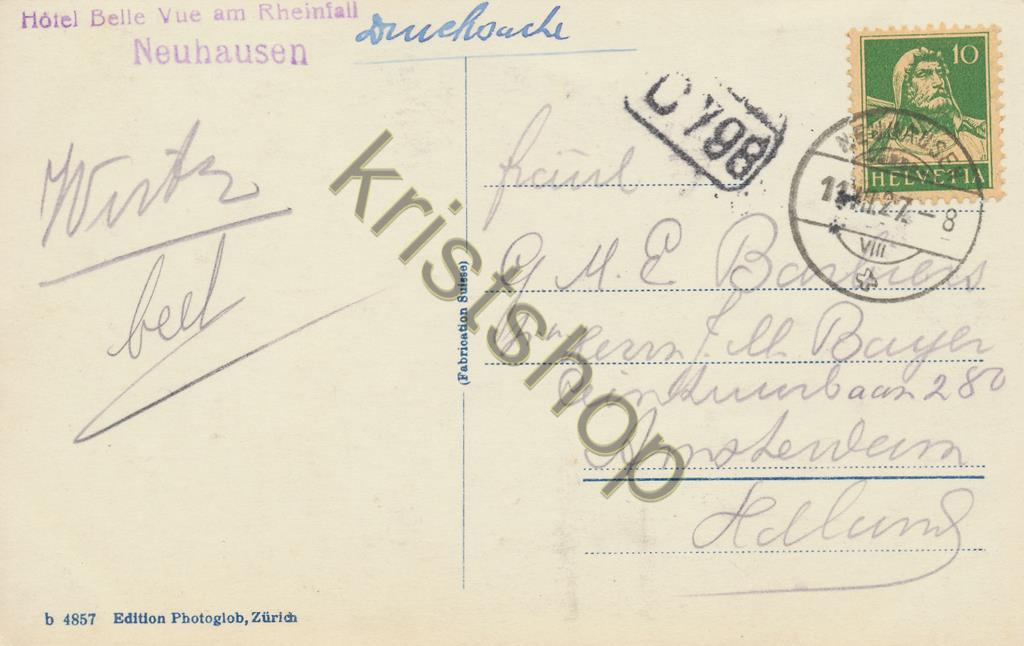 Hôtel Belle Vue am Rheinfall
Neuhausen
Drucksache
10
HELVETIA
NEUHAUSEN
11.VIII.27.-8
VIII
C 798
Fräul
M. E. Barbiers
Herrn J. M. Bayer
Ceintuurbaan 280
Amsterdam
Holland
(Fabrication Suisse)
b 4857 Edition Photoglob, Zürich
kristshop